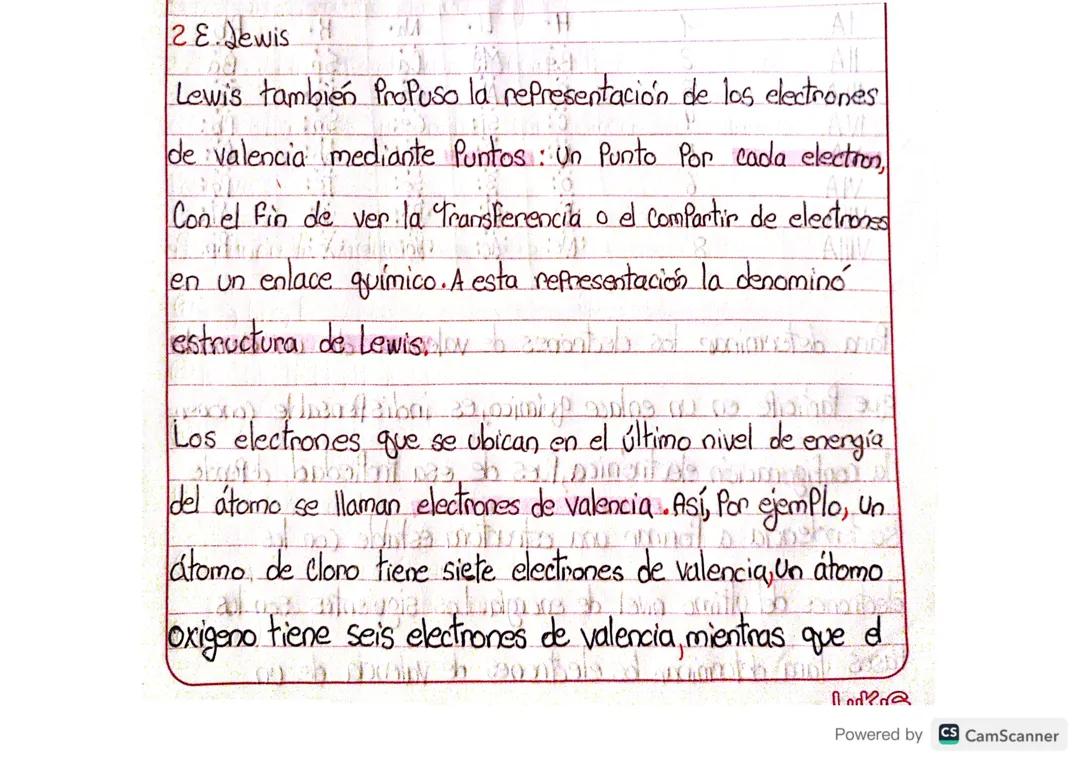 2 E. Lewis
Lewis también Propuso la representación de los electrones
de valencia mediante Puntos : Un Punto Por cada electron,
Con el Fin de ver la Transferencia o el compartir de electrones
en un enlace químico. A esta representación la denominó
estructura de Lewis.
Los electrones que se ubican en el último nivel de energía
del átomo se llaman electrones de valencia. Así, Por ejemplo, Un
átomo de Cloro tiene siete electrones de valencia, Un átomo
oxigeno tiene seis electrones de valencia, mientras que el
Powered by CS CamScanner